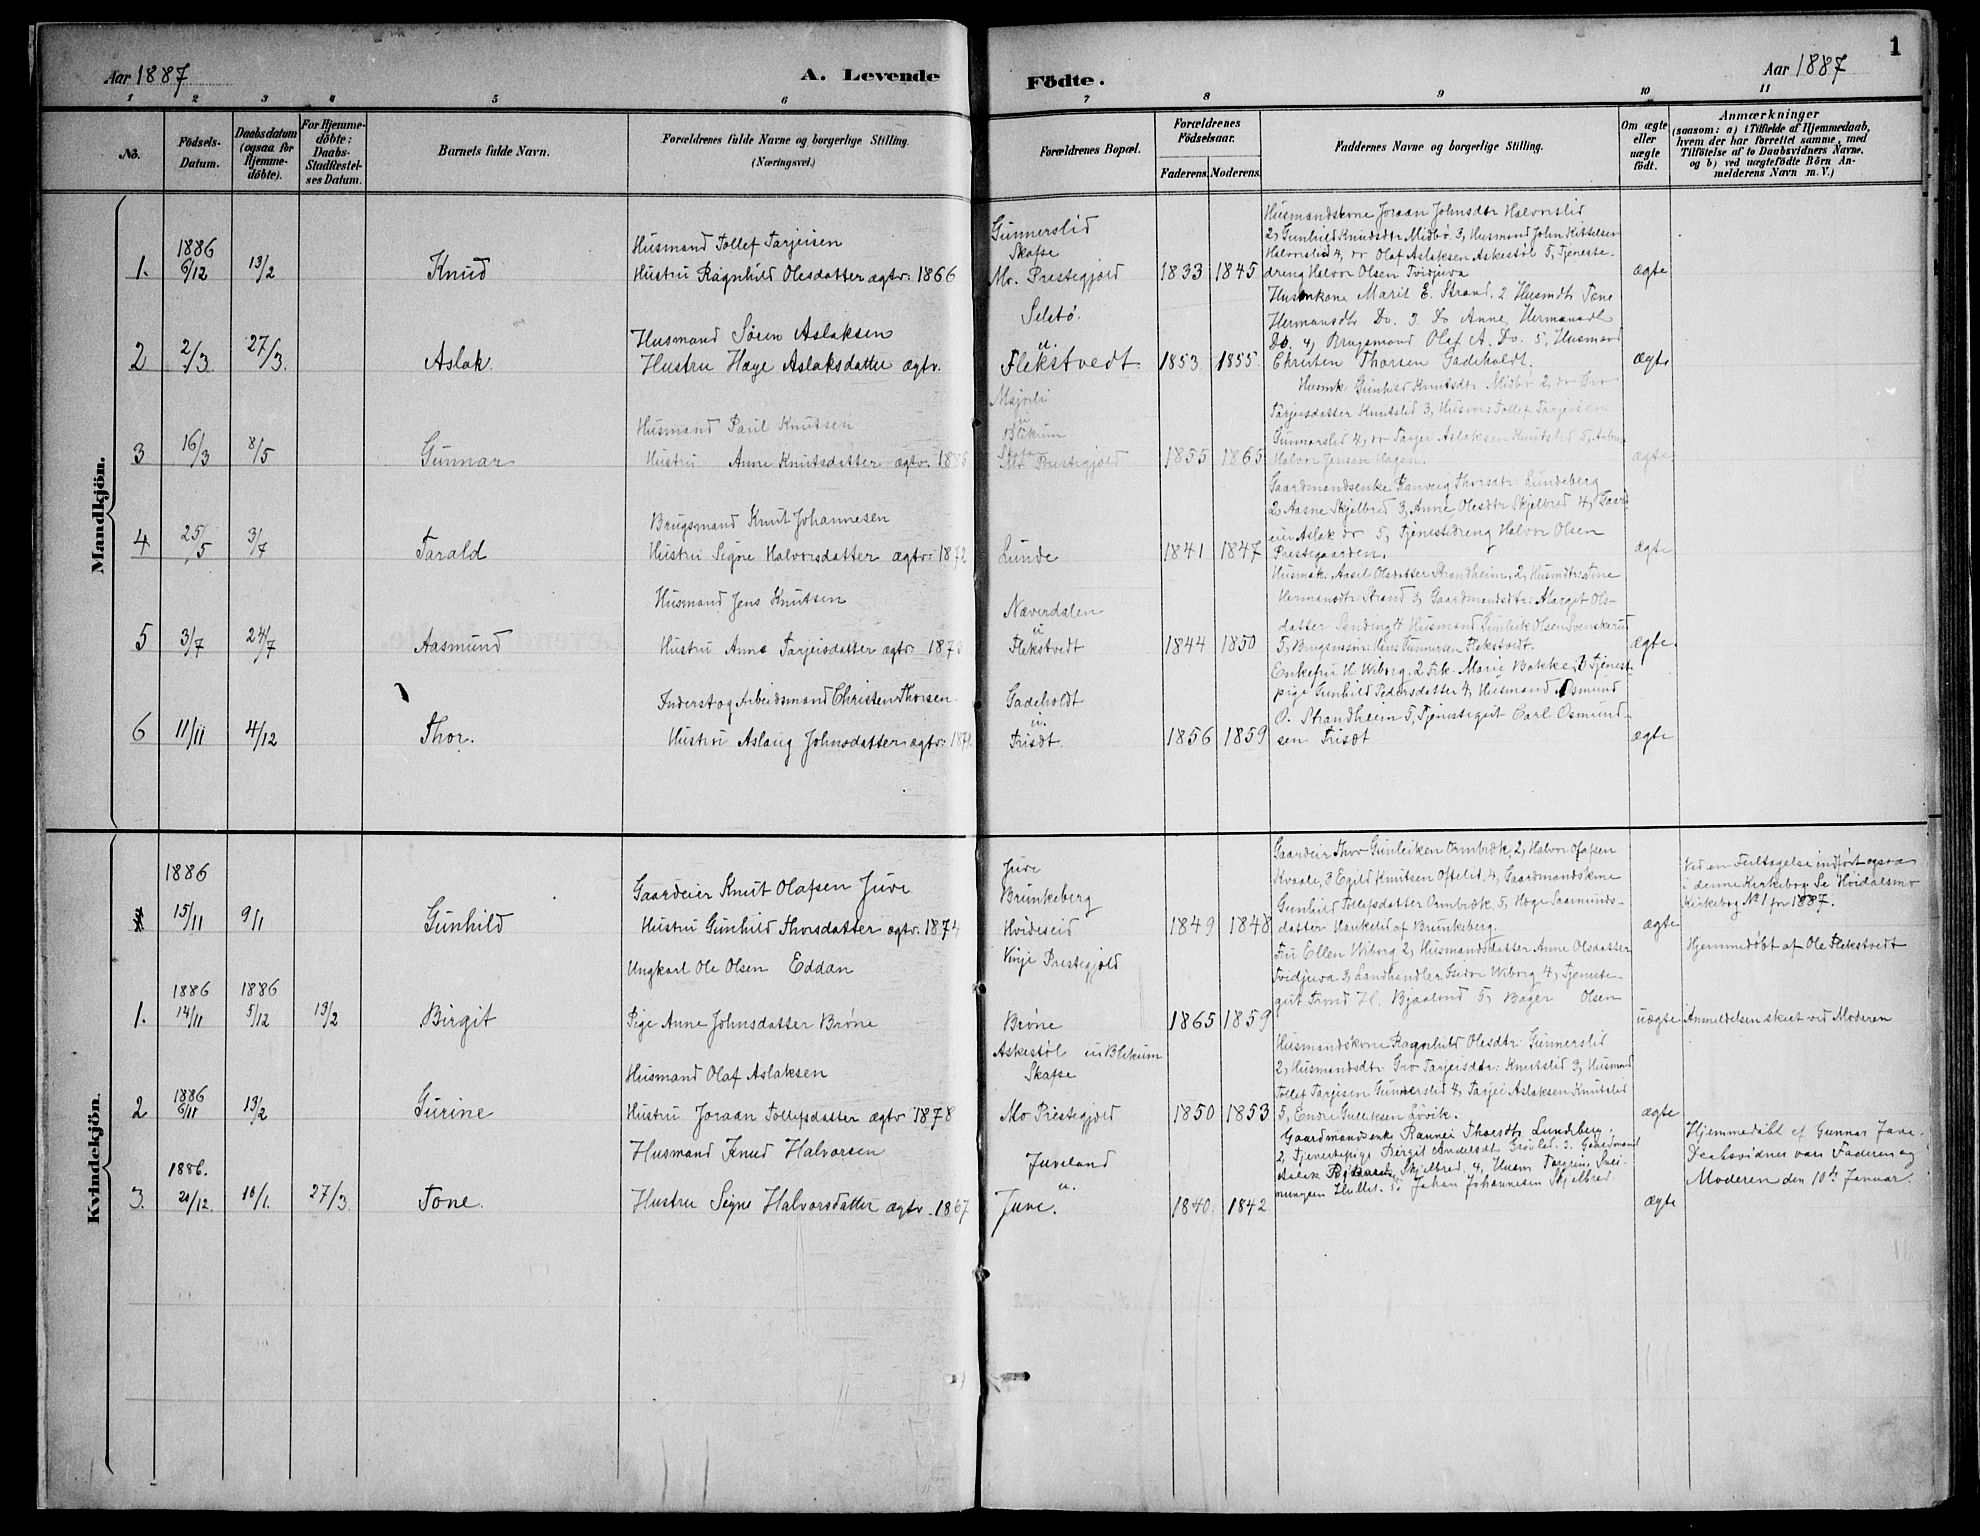 1
Aar 1887
A. Levende
Födte.
Aar 1887
1 2 3 4 5 6 7 8 9 10 11
No.
Födsels-
Datum.
Daabsdatum
(ogsaa for
Hjemme-
döbte).
For Hjemme-
döbte:
Daabs-
Stadfæstel-
ses Datum.
Barnets fulde Navn.
Forældrenes fulde Navne og borgerlige Stilling.
(Næringsvei.)
Forældrenes Bopæl.
Forældrenes
Födselsaar.
Faderens. Moderens.
Faddernes Navne og borgerlige Stilling.
Om ægte
eller
uægte
födt.
Anmærkninger
(saasom: a) i Tilfælde af Hjemmedaab,
hvem der har forrettet samme, med
Tilföielse af to Daabsvidners Navne,
og b) ved uægtefödte Börn An-
melderens Navn m. V.)
Mandkjön.
1.
1886
6/12
13/2
Knud
Husmand Tollef Tarjeisen
Hustru Ragnhild Olesdatter ægtv. 1866
Gunnerslid
Skafse
Mo. Prestegjeld
1833
1845
Husmandskone Joraan Johnsdtr Halvorslid
2, Gunhild Knudsdtr Midbø 3, Husmand John Kittelsen
Halvorslid 4, do Olaf Aslaksen Askestøl 5, Tjeneste-
dreng Halvor Olsen Tvidjuva
ægte
2
2/3.
27/3.
Aslak.
Husmand Søren Aslaksen
Hustru Hæge Aslaksdatter ægtv.
Seletø.
u.
Flekstvedt.
1853
1855.
Husmkone Marit E. Strand. 2. Husmdtr Tone
Hermansdtr Do. 3. Do Anne Hermansdt
Do. 4, Brugsmand Olaf A. Do. 5, Husmand
Christen Thorsen Gadeholdt.
ægte
3
16/3
8/5
Gunnar
Husmand Paul Knutsen
Hustru Anne Knutsdatter ægtv. 1885
Blikum
Mo Prestegjeld
1855
1865
Husmk. Gunhild Knutsdtr Midbø 2, do Gro
Tarjeisdatter Knutslid 3, Husm: Tollef Tarjeisen
Gunnarslid 4, do Tarjei Aslaksen Knutslid 5,
Halvor Jensen Hagen.
ægte
4
25/5
3/7
Tarald
Brugsmand Knut Johannesen
Hustru Signe Halvorsdatter ægtv: 1872
Lunde
1841
1847
Gaardmandsenke Ranveig Thorsdtr: Lundeberg
2, Aasne Skjelbred 3, Anne Olesdtr Skjelbred 4, Gaard-
eier Aslak do 5, Tjenestedreng Halvor Olsen
Prestegaarden.
ægte
5
3/7
24/7
Aasmund
Husmand Jens Knutsen
Hustru Anne Tarjeisdatter ægtv. 1873
Næverdalen
u
Flekstvedt
1844
1850
Husmsk. Aasil Olsdatter Strandheim, 2, Husmdtr: Tone
Hermansdtr Strand 3, Gaardmandsdtr: Marget Ols-
datter Sending 4 Husmand Gunleik Olsen Svenskerud
5, Brugsmsøn: Hans Gunnersen Flekstvedt.
ægte.
6
11/11
4/12
Thor.
Inderst og Arbeidsmand Christen Thorsen
Hustru Aslaug Johnsdatter ægtv:
Gadeholdt
u.
Trisæt.
1856
1859
Enkefru H. Wiborg, 2 Frk. Marie Bakke, 3 Tjenest-
pige Gunhild Pedersdatter 4, Husmand Osmund
O. Strandheim 5, Tjenestegut Carl Osmund-
sen Trisæt
ægte
Kvindekjön.
1886
15/11
9/1
Gunhild
Gaardeier Knut Olafsen Juve
Hustru Gunhild Thorsdatter ægtv. 1874
Juve
Brunkeberg
Hvideseid
1849
1848
Gaardeir Thor Gunleiksen Ormbræk, 2, Halvor Olafsen
Kvaale, 3 Egild Knutsen Oftelid, 4, Gaardmandskone
Gunhild Tollefsdatter Ormbræk, 5, Hæge Saamunds-
datter Haukelid af Brunkeberg.
ægte
Ved en Feiltagelse indført ogsaa
i denne Kirkebog. Se Høidalsmo
Kirkebog No 1 for 1887.
1.
1886
14/11
1886
5/12
13/2
Birgit
Ungkarl Ole Olsen Eddan
Pige Anne Johnsdatter Brøne
Vinje Prestegjeld
Brøne
1865
1859
Fru Ellen Wiborg 2, Husmandsdatter Anne Olsdatter
Tvidjuva 3, Landhandler Isidor Wiborg 4, Tjeneste-
gut Trond H. Bjaaland 5, Bager Olsen
uægte
Hjemmedøbt af Ole Flekstvedt
Anmeldelsen skeet ved Moderen
2
1886
6/11
13/2
Gurine
Husmand Olaf Aslaksen
Hustru Joraan Tollefsdatter ægtv 1878
Askestøl u Blikum
Skafse
Mo Prestegjeld
1850
1853
Husmandskone Ragnhild Olesdtr: Gunnerslid
2, Husmandsdtr: Gro Tarjeisdtr: Knutslid 3, Husmand
Tollef Tarjeisen Gunnerslid 4, Tarjei Aslaksen Knutslid
5, Endre Gulliksen Løvik.
ægte
3.
1886.
20/12.
10/1.
27/3.
Tone.
Husmand Knud Halvorsen
Hustru Signe Halvorsdatter ægtv. 1867
Juveland
u.
Juve.
1840.
1842
Gaardmandsenk Rannei Thorsdtr Lundeberg.
2, Tjenestepige Bergit Andersdt. 3. Gaardmand
Aslak Skjelbred. 4, Husm Torgrim
Hullet. 5. Johan Johannesen Skjelbred.
ægte
Hjemmedøbt af Gunnar Juve.
Daabsvidner vare Faderen og
Moderen den 10de Januar.